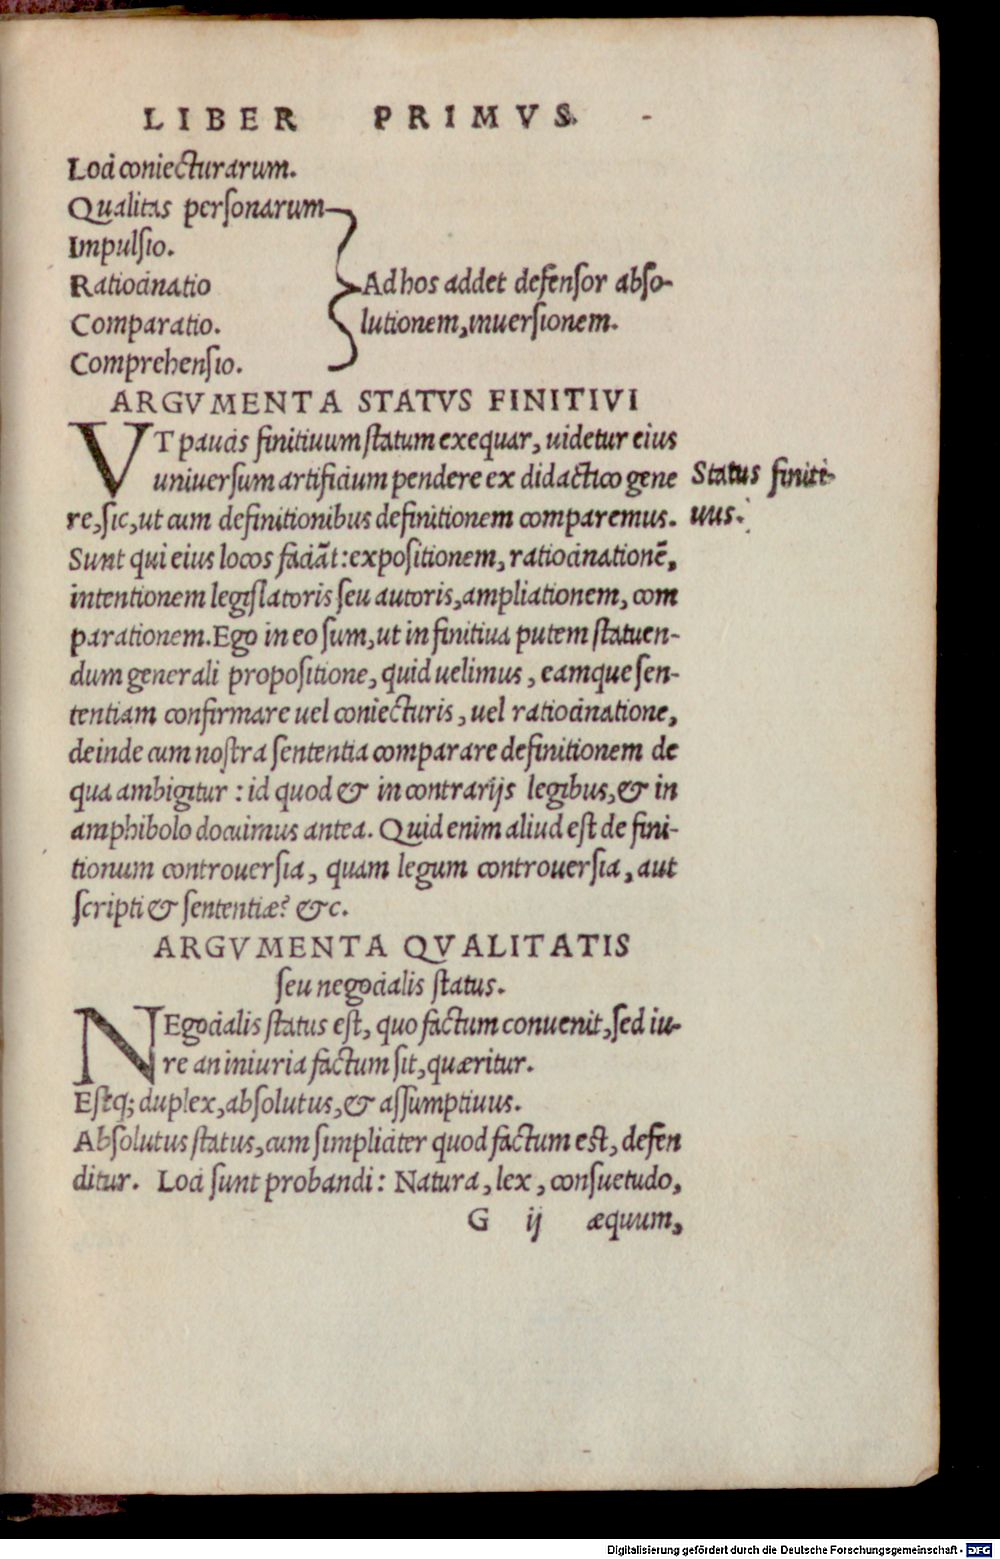 LIBER PRIMVS.
Loci coniecturarum.
Qualitas personarum
Impulsio.
Ratiocinatio
Comparatio.
Comprehensio.
Ad hos addet defensor abso-
lutionem, inuersionem.
ARGVMENTA STATVS FINITIVI
VT paucis finitiuum statum exequar, uidetur eius
uniuersum artificium pendere ex didactico gene
re, sic, ut cum definitionibus definitionem comparemus.
Status finiti-
uus.
Sunt qui eius locos faciāt: expositionem, ratiocinationē,
intentionem legislatoris seu autoris, ampliationem, com
parationem. Ego in eo sum, ut in finitiua putem statuen-
dum generali propositione, quid uelimus, eamque sen-
tentiam confirmare uel coniecturis, uel ratiocinatione,
deinde cum nostra sententia comparare definitionem de
qua ambigitur: id quod & in contrarijs legibus, & in
amphibolo docuimus antea. Quid enim aliud est de fini-
tionum controuersia, quam legum controuersia, aut
scripti & sententiæ? &c.
ARGVMENTA QVALITATIS
seu negocialis status.
NEgocialis status est, quo factum conuenit, sed iu-
re an iniuria factum sit, quæritur.
Estq; duplex, absolutus, & assumptiuus.
Absolutus status, cum simpliciter quod factum est, defen
ditur. Loci sunt probandi: Natura, lex, consuetudo,
G ij æquum,
Digitalisierung gefördert durch die Deutsche Forschungsgemeinschaft - DFG